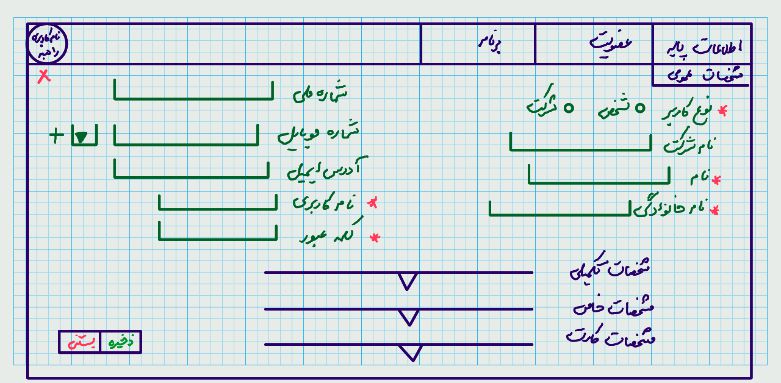 اطلاعات پایه
عضویت
برنامه
نام کاربری
راهبر
مشخصات عمومی
* نوع کاربر
شخص
شرکت
نام شرکت
* نام
* نام خانوادگی
شماره ملی
شماره موبایل
+
آدرس ایمیل
* نام کاربری
* کلمه عبور
مشخصات تکمیلی
مشخصات خاص
مشخصات کارت
ذخیره
بستن